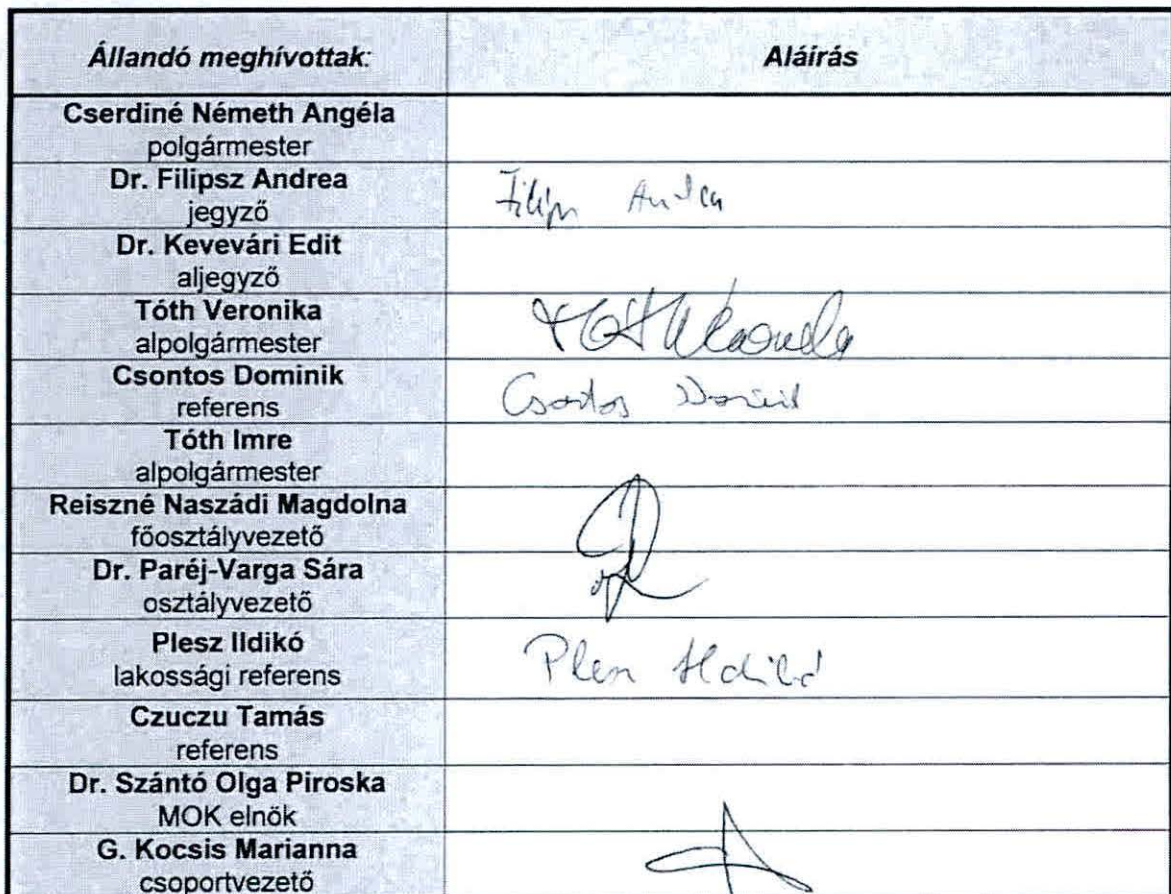 Állandó meghívottak: Aláírás
Cserdiné Németh Angéla
polgármester
Dr. Filipsz Andrea
jegyző
Filipsz Andrea
Dr. Kevevári Edit
aljegyző
Tóth Veronika
alpolgármester
Csontos Dominik
referens
Csontos Dominik
Tóth Imre
alpolgármester
Reiszné Naszádi Magdolna
főosztályvezető
Dr. Paréj-Varga Sára
osztályvezető
Plesz Ildikó
lakossági referens
Plesz Ildikó
Czuczu Tamás
referens
Dr. Szántó Olga Piroska
MOK elnök
G. Kocsis Marianna
csoportvezető